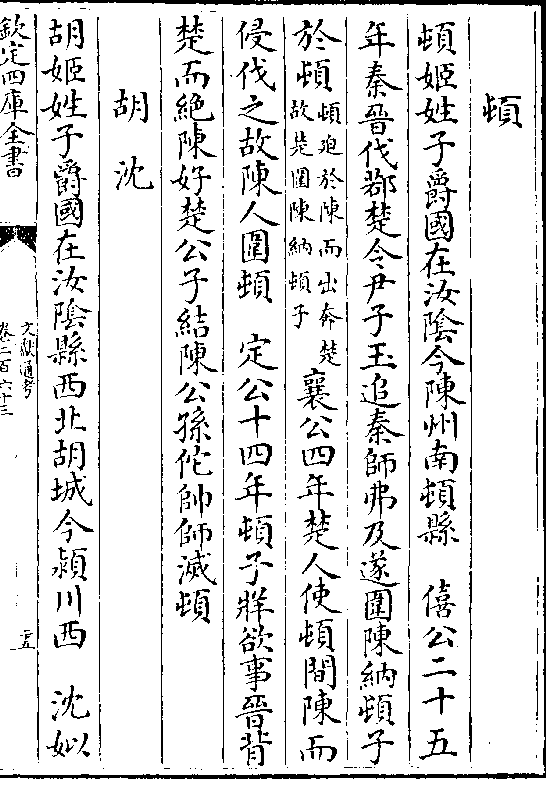 頓
頓姬姓子爵國在汝隂今陳州南頓縣　僖公二十五
年秦晉伐鄀楚令尹子玉追秦師弗及遂圍陳納頓子
於頓頓廹於陳而出奔楚故楚圍陳納頓子　襄公四年楚人使頓間陳而
侵伐之故陳人圍頓　定公十四年頓子牂欲事晉背
楚而絶陳好楚公子結陳公孫佗帥師滅頓
胡沈
胡姬姓子爵國在汝隂縣西北胡城今潁川西　沈姒
欽定四庫全書
文獻通考
卷二百六十三
十五